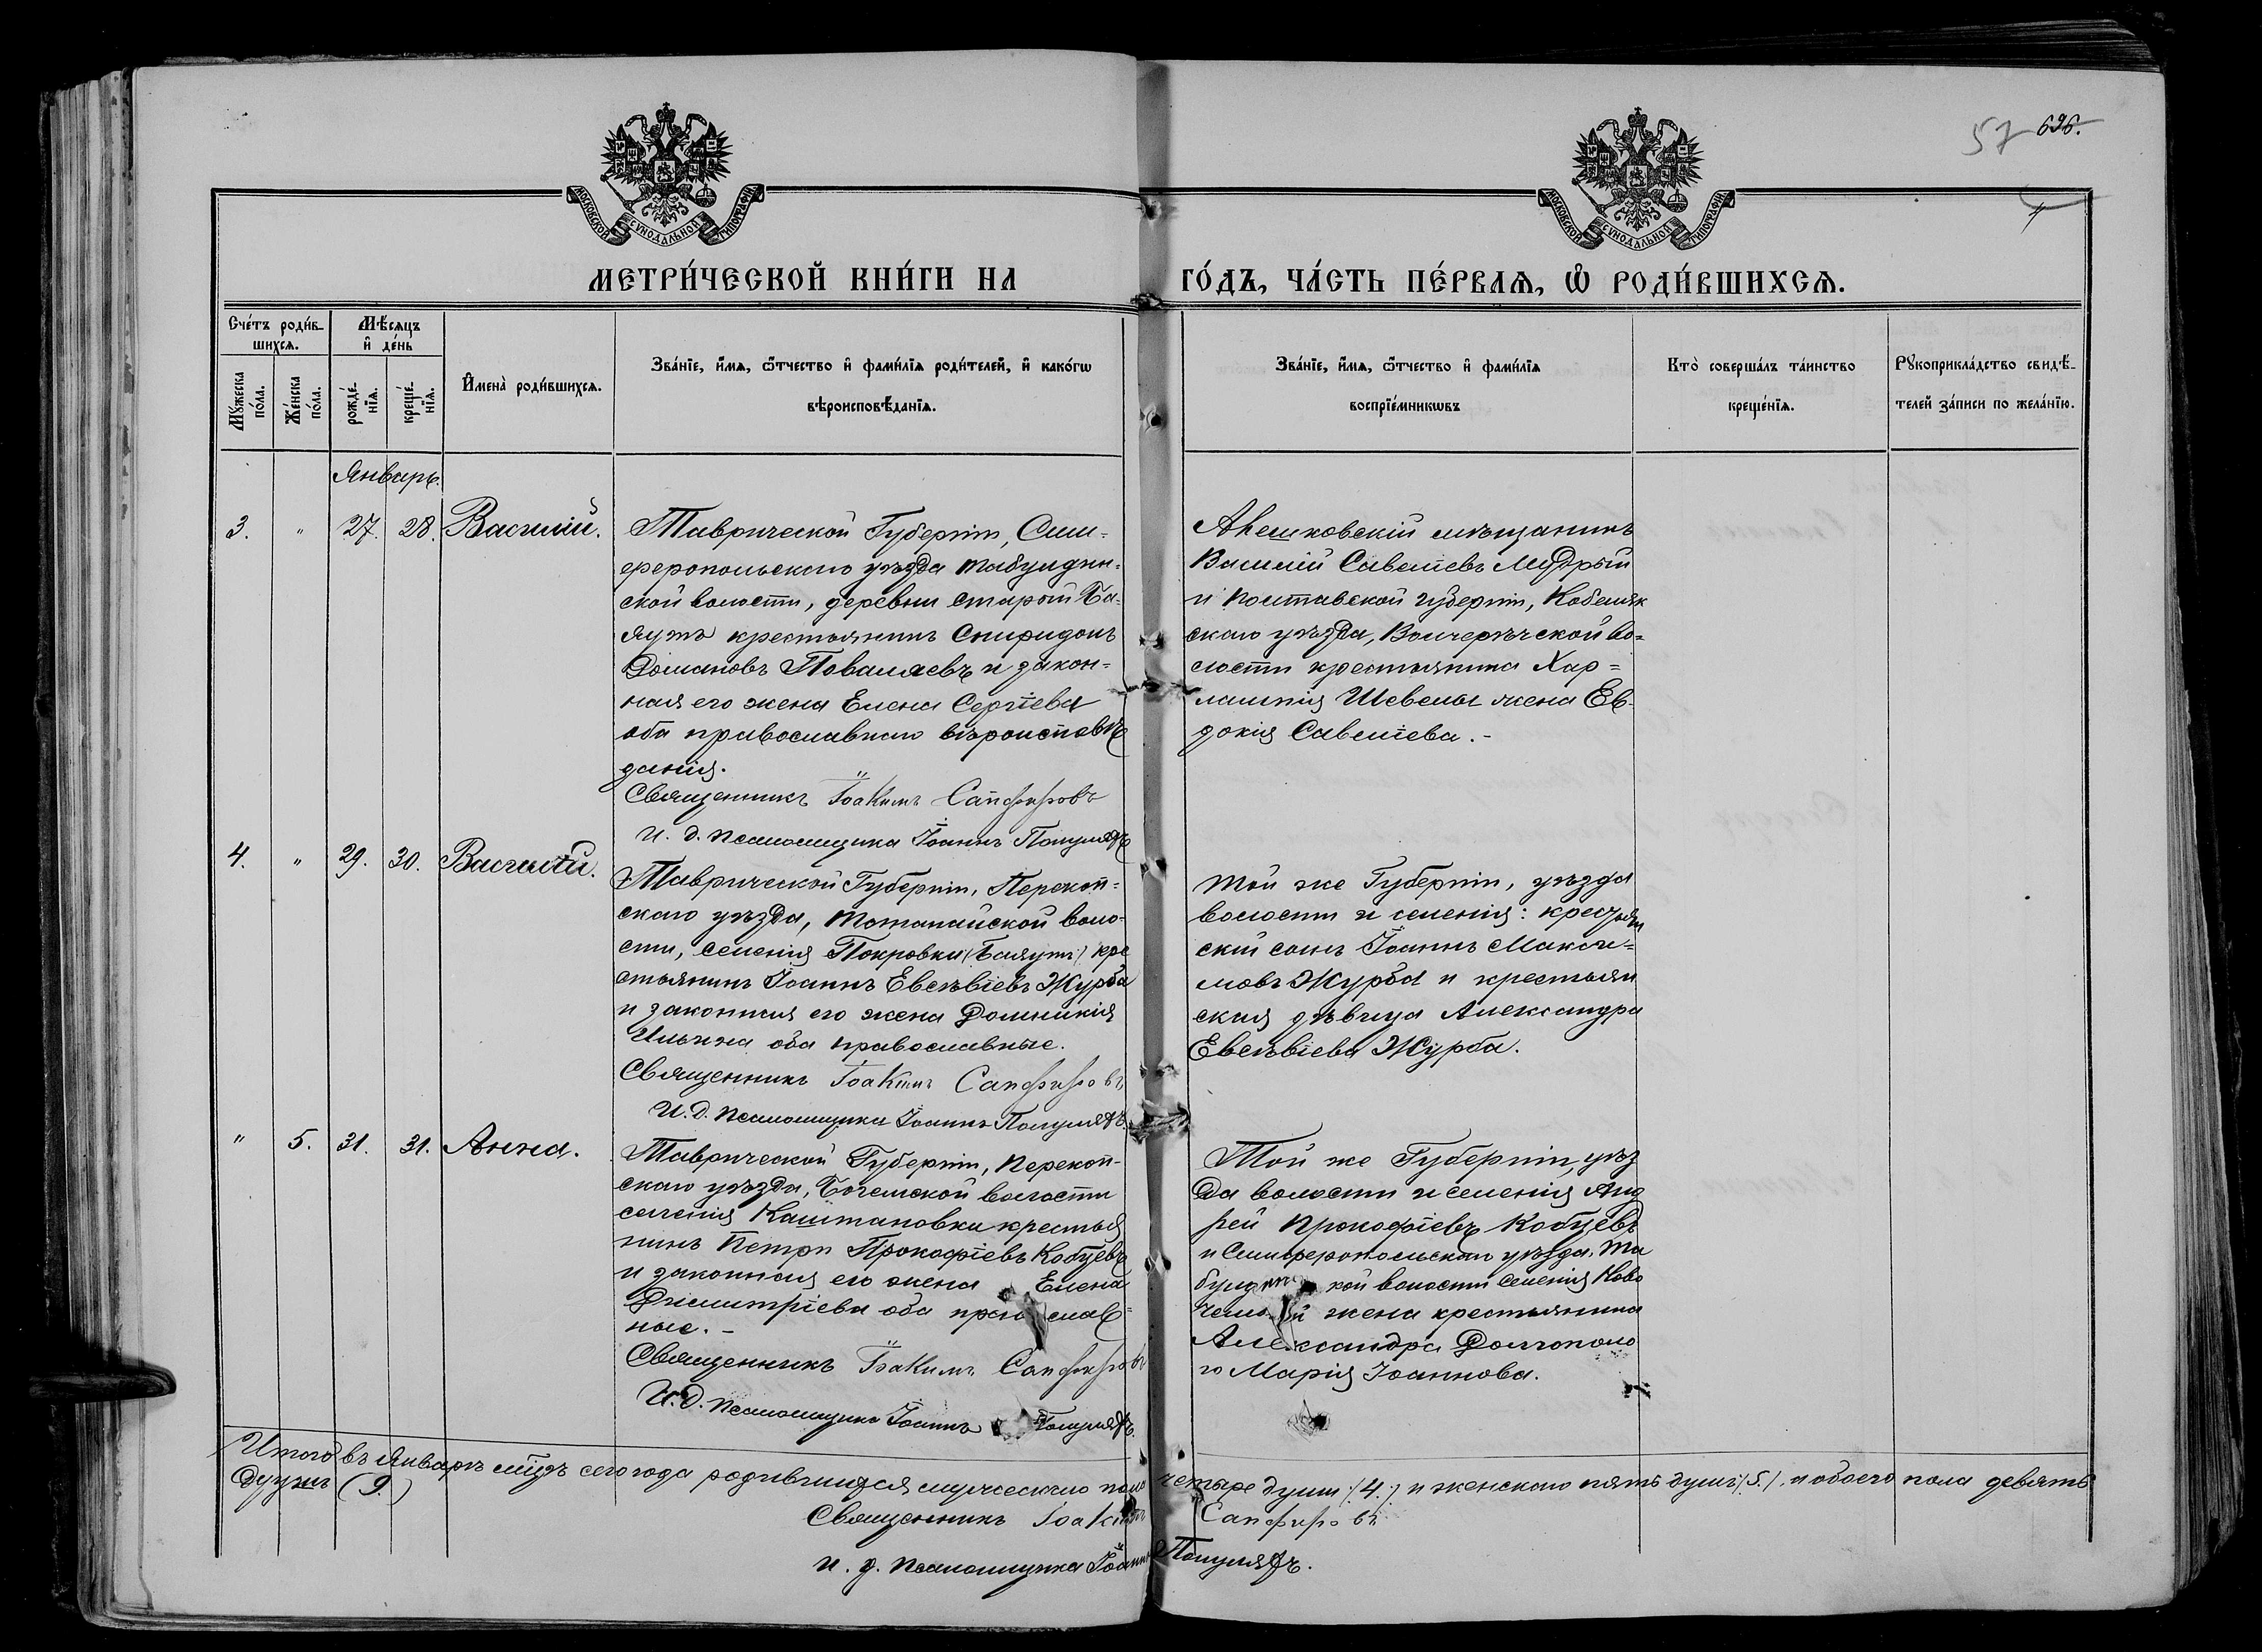 57 696.
МОСКОВСКОЙ СѴНОДАЛЬНОЙ ТИПОГРАФІИ
МОСКОВСКОЙ СѴНОДАЛЬНОЙ ТИПОГРАФІИ
МЕТРИ́ЧЕСКОЙ КНИ́ГИ НА
ГО́ДЪ, ЧА́СТЬ ПЕ́РВАѦ, Ѿ РОДИ́ВШИХСѦ.
Сче́тъ роди́в-
шихсѧ.
Мѣ́сѧцъ
и҆ де́нь
Мꙋ́жеска
по́ла.
Же́нска
по́ла.
рожде́-
нїѧ.
креще́-
нїѧ.
И҆мена̀ роди́вшихсѧ.
Зва́нїе, и҆́мѧ, ѻ҆́тчество и҆ фами́лїѧ роди́телей, и҆ како́гѡ
вѣроисповѣ́данїѧ.
Зва́нїе, и҆́мѧ, ѻ҆́тчество и҆ фами́лїѧ
воспрїе́мникѡвъ
Кто̀ соверша́лъ та́инство
креще́нїѧ.
Рꙋкоприкла́дство свидѣ́-
телей за́писи по жела́нїю.
Январь.
3. " 27. 28. Василій.
Таврической Губерніи, Сим-
феропольскаго уѣзда Табулдин-
ской волости, деревни Старый Ба-
яутъ крестьянинъ Спиридонъ
Домановъ Поваляевъ и закон-
ная его жена Елена Сергіева
оба православнаго вѣроисповѣ
данія.
Священникъ Іоакимъ Сапфировъ
И. д. псаломщика Іоаннъ Популядъ
Алешковскій мѣщанинъ
Василій Савеліевъ Мудрый
и Полтавской губерніи, Кобеляк
скаго уѣзда, Волчерѣчской во-
лости крестьянина Хар-
лампія Шевелы жена Ев-
докія Савеліева.-
4. " 29. 30. Василій.
Таврической Губерніи, Перекоп-
скаго уѣзда, Тотанайской воло-
сти, селенія Покровки (Баяутъ) кре
стьянинъ Іоаннъ Евсѣвіевъ Журба
и законная его жена Домникія
Ильина оба православные.
Священникъ Іоакимъ Сапфировъ
И. д. псаломщика Іоаннъ Популядъ.
Той же Губерніи, уѣзда
волости и селенія: крестьян
скій сынъ Іоаннъ Макси-
мовъ Журба и крестьян
ская дѣвица Александра
Евсѣвіева Журба.
" 5. 31. 31. Анна.
Таврической Губерніи, Перекоп-
скаго уѣзда, Богемской волости
селенія Каштановки крестья
нинъ Петръ Прокофіевъ Кобцевъ
и законная его жена Елена
Димитріева оба православ-
ные.-
Священникъ Іоакимъ Сапфировъ
И. д. псаломщика Іоаннъ Популядъ.
Той же Губерніи, уѣз
да волости и селенія Анд
рей Прокофіевъ Кобцевъ
и Симферопольскаго уѣзда, Та
булдинской волости селенія Ново
жена крестьянина
Александра Долгополо
го Марія Іоаннова.
Итого въ Январѣ мѣсяцѣ сего года родившихся мужескаго пола четыре души (4.) и женскаго пять душъ (5.), и обоего пола девять
душъ (9.)
Священникъ Іоакимъ Сапфировъ
И. д. псаломщика Іоаннъ Популядъ.